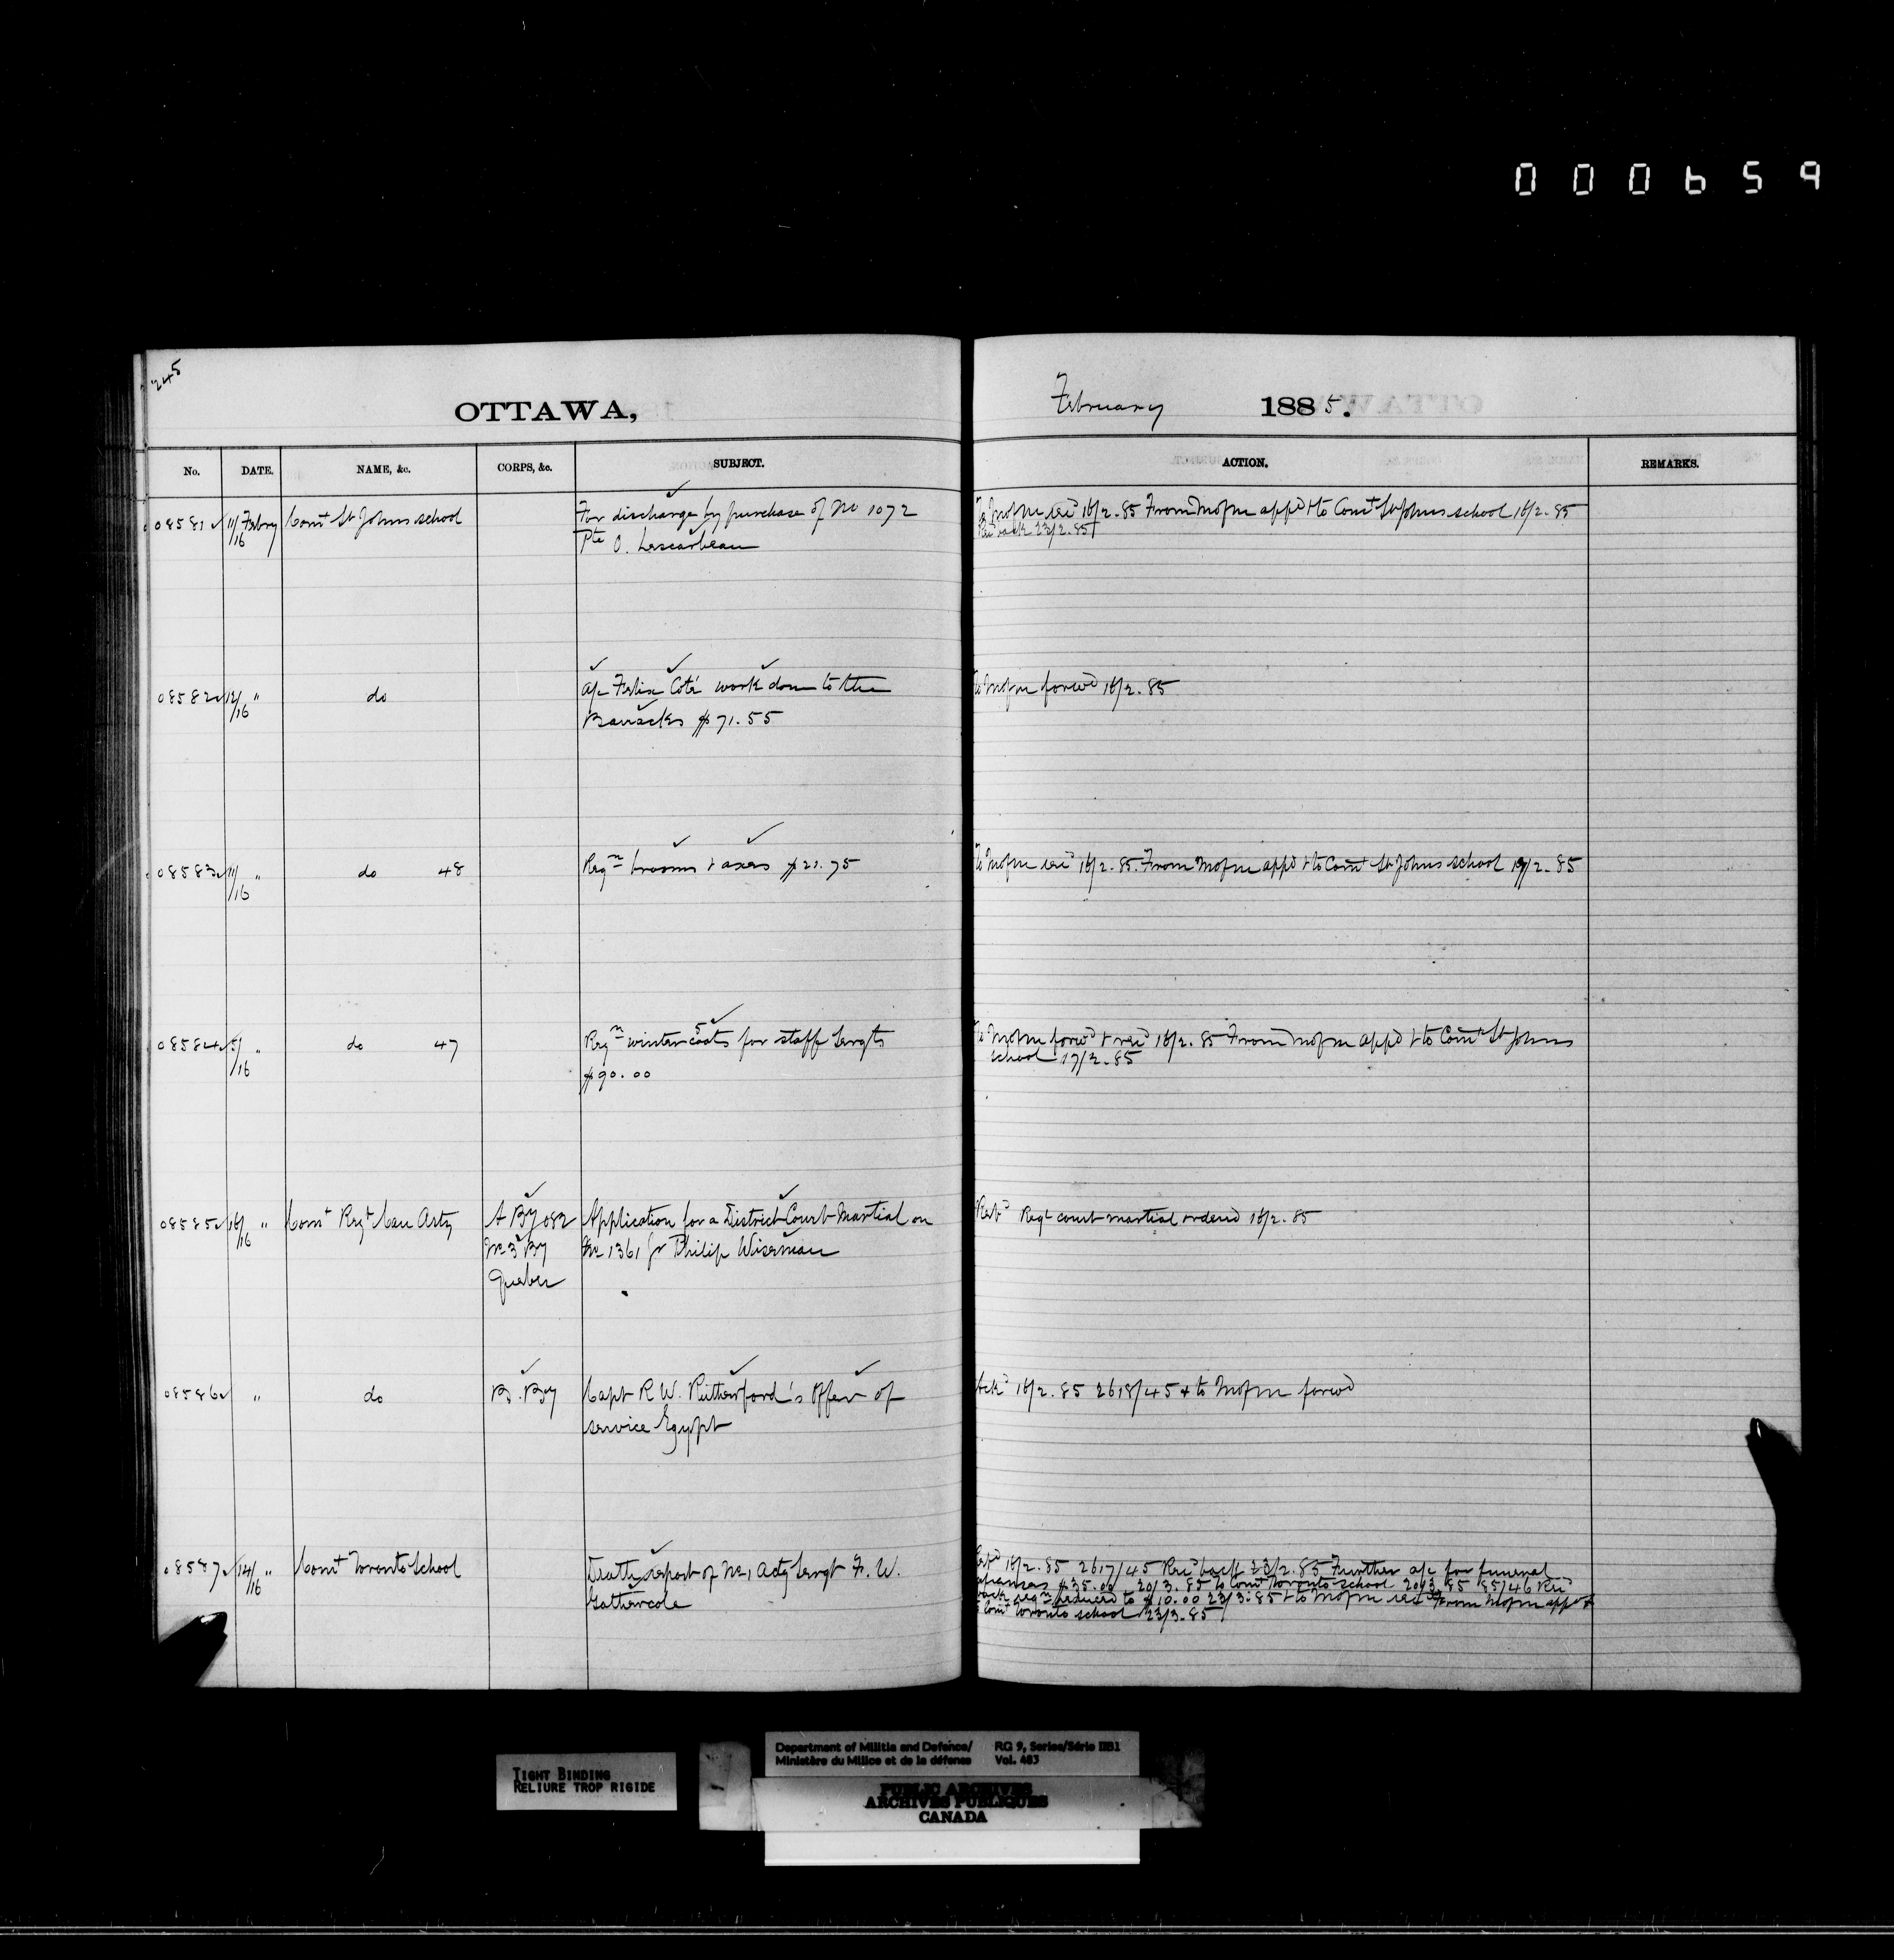 000659
245
OTTAWA,
February 1885.
No. DATE. NAME, &c. CORPS, &c. SUBJECT. ACTION. REMARKS.
08581 11/16 Febry Comt St Johns school For discharge by purchase of No 1072
Pte O. Lescarbeau
To Mofm rec'd 16/2.85 From Mofm app'd & to Comt St Johns school 16/2.85
Rec'd back 23/2.85
08582 12/16 " do a/c Felix Coté work done to the
Barracks $71.55
To Mofm forwd 16/2.85
08583 11/16 " do 48 Reqn brooms & axes $21.75
To Mofm recd 16/2.85. From Mofm appd & to Comt St Johns school 19/2.85
08584 5/16 " do 47 Reqn 5 winter coats for staff Sergts
$90.00
To Mofm forwd & recd 16/2.85 From Mofm appd & to Comt St Johns
school 17/2.85
08585 16/16 " Comt Regt Can Arty A By 082 Application for a District Court Martial on
No 3 By No 1361 Gr Philip Wiseman
Quebec
Retd Regl court martial ordered 16/2.85
08586 " do B. By Capt R W. Rutherford's offer of
service Egypt
Ackd 16/2.85 2618/45 & to Mofm forwd
08587 14/16 " Comt Toronto School Death report of No 1 Actg Sergt F. W.
Gathercole
Retd 16/2.85 2617/45 Recd back 23/2.85 Further a/c for funeral
expenses $35.00 20/3.85 to Comt Toronto school 20/3.85 85/46 Recd
back reqn reduced to $10.00 23/3.85 & to Mofm recd From Mofm appd &
to Comt Toronto school 23/3.85
TIGHT BINDING
RELIURE TROP RIGIDE
Department of Militia and Defence/ RG 9, Series/Série IIB1
Ministère du Milice et de la défense Vol. 483
PUBLIC ARCHIVES
ARCHIVES PUBLIQUES
CANADA